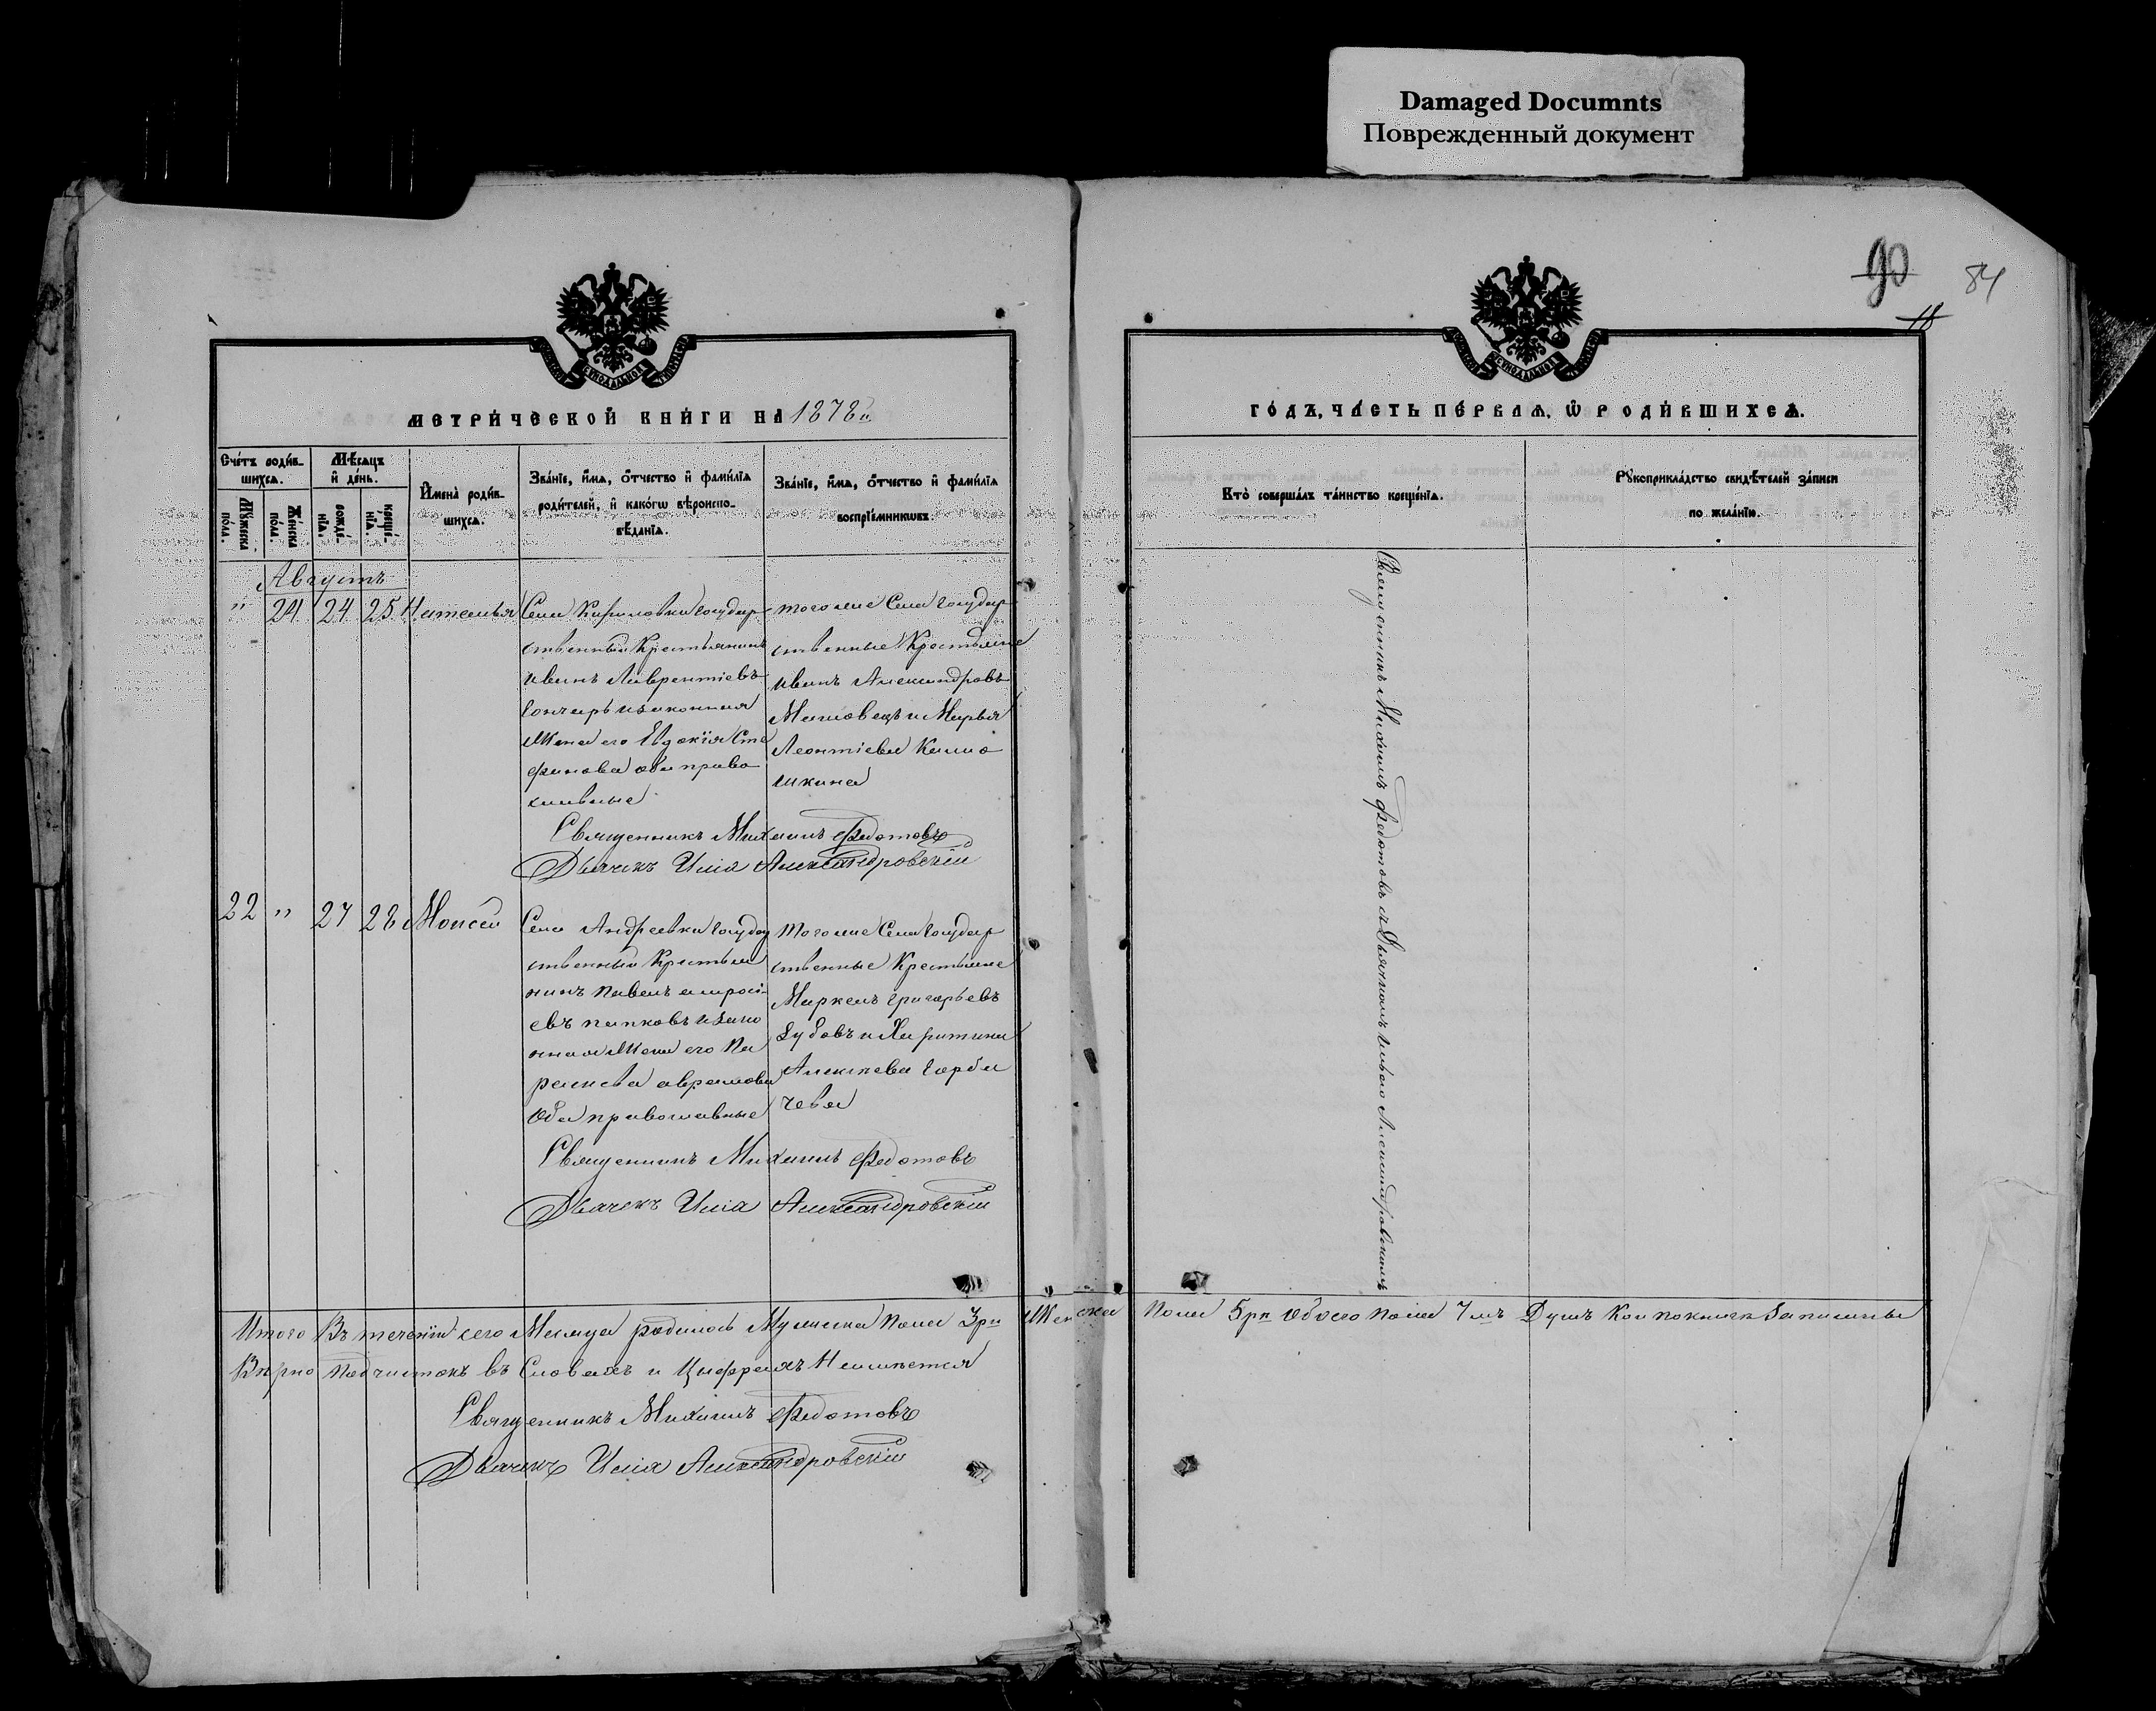 Damaged Documnts
Поврежденный документ
90
84
11
СѴНОДАЛЬНОЙ
СѴНОДАЛЬНОЙ
МЕТРИ́ЧЕСКОЙ КНИ́ГИ НА 1878й
ГО́ДЪ, ЧА́СТЬ ПЕ́РВАѦ, Ѡ РОДИ́ВШИХСѦ.
Сче́тъ роди́в-
шихсѧ.
Мꙋ́жеска по́ла.
Же́нска по́ла.
Мѣ́сѧцъ
и де́нь.
рожде́-
нїѧ.
креще́-
нїѧ.
Имена̀ роди́в-
шихсѧ.
Зва́нїе, и́мѧ, о́тчество и фами́лїѧ
роди́телей, и како́гѡ вѣроиспо-
вѣ́данїѧ.
Зва́нїе, и́мѧ, о́тчество и фами́лїѧ
воспрїе́мникѡвъ.
Кто̀ соверша́лъ та́инство креще́нїѧ.
Рꙋкоприкла́дство свидѣ́телей за́писи
по жела́нїю.
Августъ
" 21 24 25 Наталья
Села Кириловки государ
ственный Крестьянинъ
иванъ Лаврентіевъ
Гончаръ и законная
Жена его Евдокія Сте
фанова оба право
славные
тогоже Села государ
ственные Крестьяне
иванъ Александровъ
и Марья
Леонтіева Кало
шкина
Священникъ Михаилъ Федотовъ
Дьячекъ Илія Александровскій
22 " 27 28 Моисей
Села Андреевки государ
ственный Крестья
нинъ Павелъ
евъ папковъ и зако
нная Жена его Па
раскева аврамова
Оба православные
тогоже Села государ
ственные Крестьяне
Маркелъ григорьевъ
Зубовъ и Харитина
Алексѣева Горба
чева
Священникъ Михаилъ Федотовъ
Дьячекъ Илія Александровскій
Священникъ Михаилъ Федотовъ съ Дьячкомъ Иліею Александровскимъ
Итого Въ теченіи сего Месяца родилось Мужска Пола 3ри Женска Пола 5ри Обоего Пола 7мь Душъ Кои по книгѣ Записаны
Вѣрно Подчистокъ въ Словахъ и Цыффрахъ Неимѣется
Священникъ Михаилъ Федотовъ
Дьячекъ Илія Александровскій